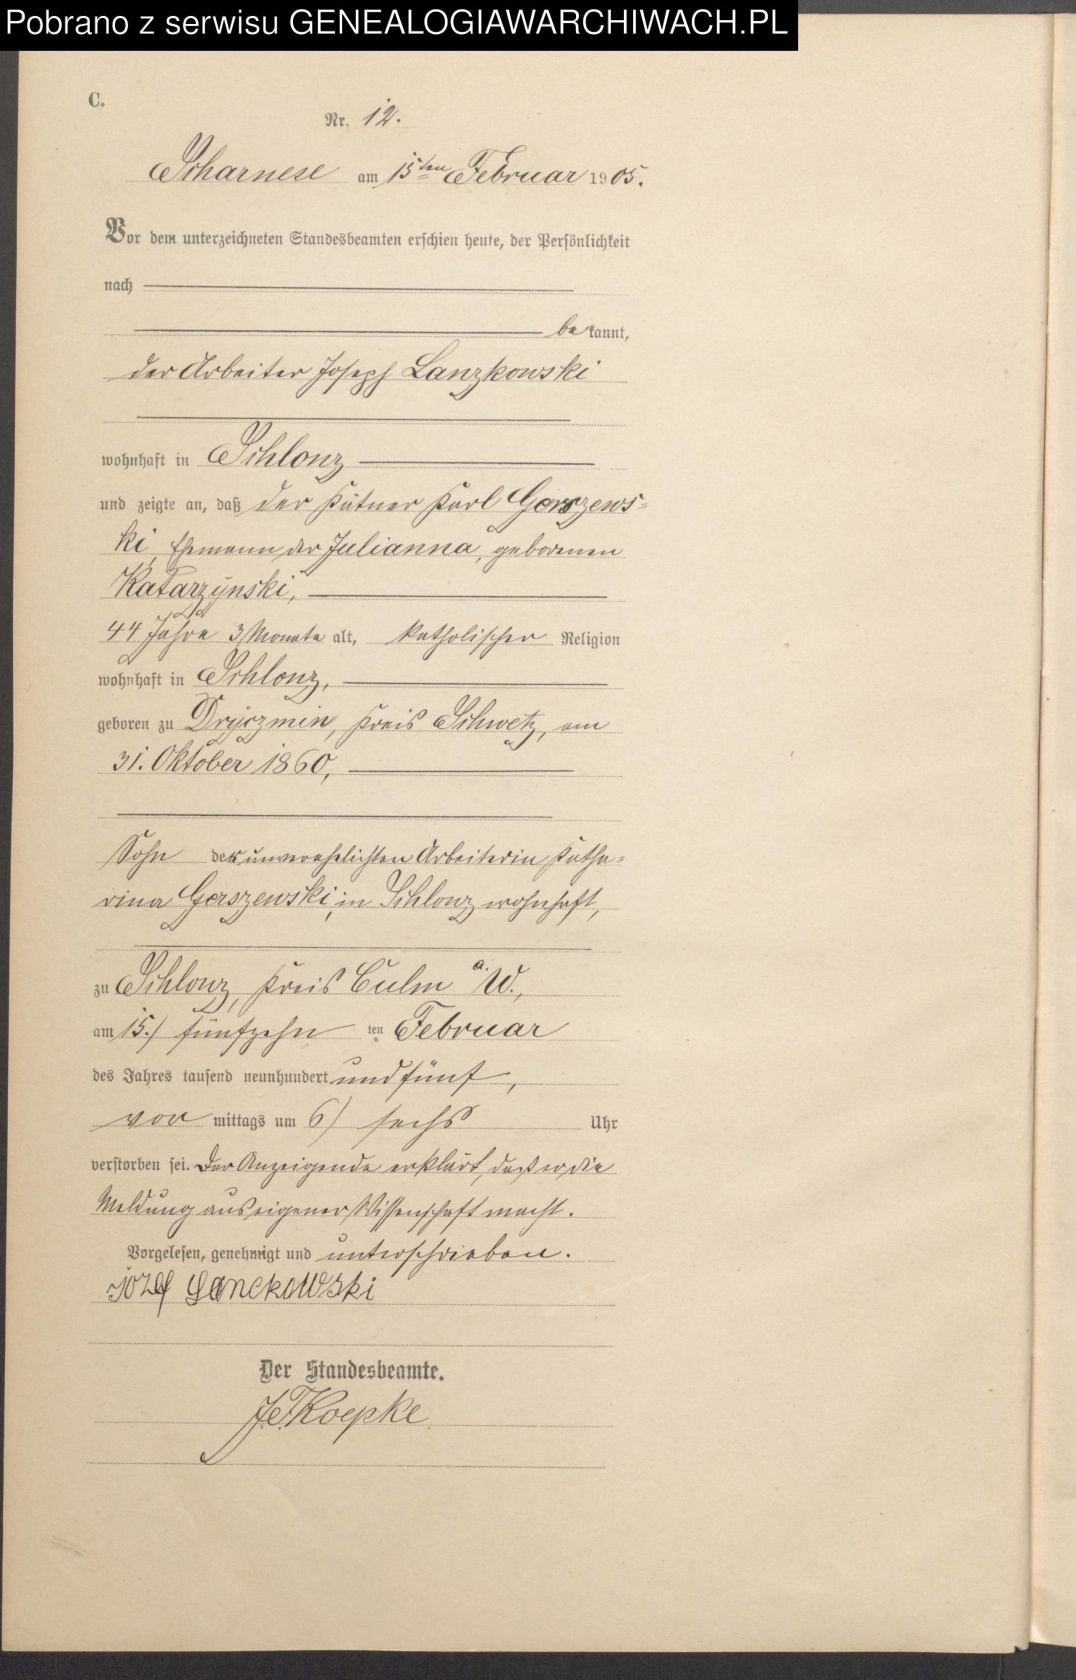 Pobrano z serwisu GENEALOGIAWARCHIWACH.PL
C.
Nr. 12.
Scharnese am 15ten Februar 1905.
Vor dem unterzeichneten Standesbeamten erschien heute, der Persönlichkeit
nach
bekannt,
der Arbeiter Joseph Lanzkowski
wohnhaft in Schlonz
und zeigte an, daß der Kätner Karl Gerszews=
ki, Ehemann der Julianna, geborenen
Katarzynski,
44 Jahre 3 Monate alt, katholischer Religion
wohnhaft in Schlonz,
geboren zu Dryczmin, Kreis Schwetz, am
31. Oktober 1860,
Sohn der unverehelichten Arbeiterin Katha=
rina Gerszewski, in Schlonz wohnhaft,
zu Schlonz, Kreis Culm a. W.,
am 15./ fünfzehn ten Februar
des Jahres tausend neunhundert und fünf,
vor mittags um 6) sechs Uhr
verstorben sei. Der Anzeigende erklärt, daß er die
Meldung aus eigener Wissenschaft macht.
Vorgelesen, genehmigt und unterschrieben.
Jozef Lanckowski
Der Standesbeamte.
Koepke